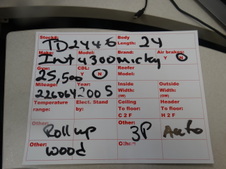 Stock#: TD2446 Body Length: 24
Make: Model: Brand: Air brakes:
Int 4300 Micky Y N
Gvw: CDL: Reefer
25,500 Y N Model:
Mileage: Year: Inside Outside
226064 2005 Width: Width:
Temperature Elect. Stand Ceiling Header
range: by To floor: To floor:
Y N C 2 F H 2 F
Roll up 3P Auto
Other: wood Other: